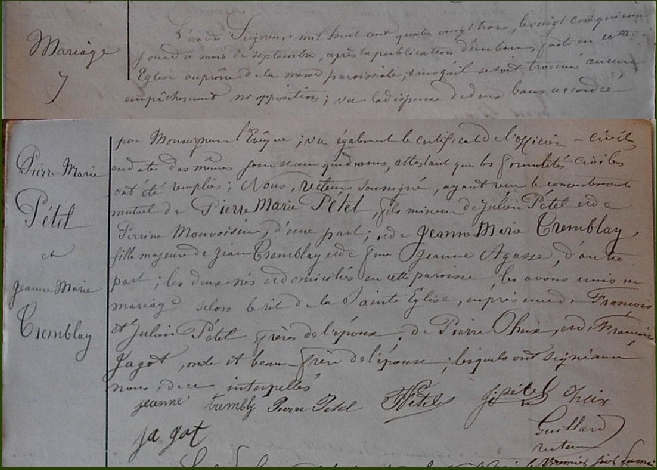 Mariage
7
L'an du Seigneur mil huit cent quatre vingt trois, le vingt cinquième
jour du mois de septembre, après la publication d'un ban, faite en cette
Eglise au prône de la messe paroissiale, sans qu'il se soit trouvé aucun
empêchement ni opposition; vu la dispense de deux bans accordée
Pierre Marie
Pétel
et
Jeanne Marie
Tremblay
par Monseigneur l'Evêque; vu également le certificat de l'officier civil
en date des mêmes jour et an que dessus, attestant que les formalités civiles
ont été remplies; Nous, recteur soussigné, ayant reçu le consentement
mutuel de Pierre Marie Pétel, fils mineur de Julien Pétel et de
Perrine Mauvoisin, d'une part; et de Jeanne Marie Tremblay
fille majeure de Jean Tremblay et de feue Jeanne Agasse, d'autre
part; les deux nés et domiciliés en cette paroisse, les avons unis en
mariage selon le rit de la Sainte Eglise, en présence de François
et Julien Pétel frères de l'époux, de Pierre et de
Jagot, oncle et beau-frère de l'épouse; lesquels ont signé avec
nous, de ce interpellés
jeanne trembly Pierre Petel F Petel j petel
jagot
Guillard
recteur